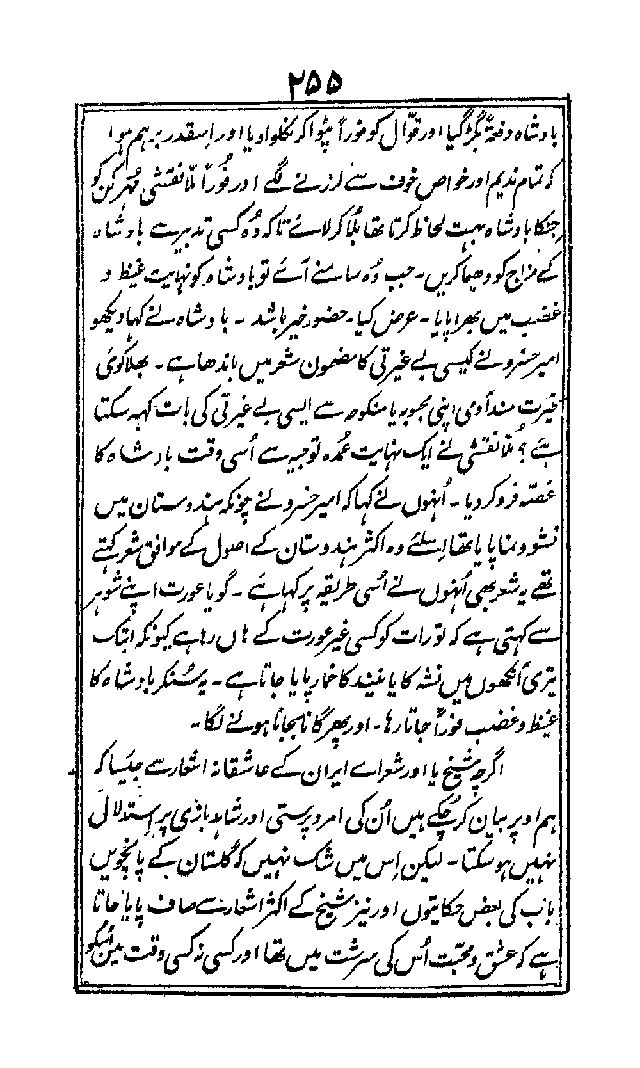 ۲۵۵
بادشاہ دفعۃً بگڑ گیا اور قوّال کو فوراً پٹوا کر نکلوا دیا اور اسقدر برہم ہوا
کہ تمام ندیم اور خواص خوف سے لرزنے لگے اور فوراً ملّا نقشی مُہر کن کو
جنکا بادشاہ بہت لحاظ کرتا تھا بلا کر لائے تاکہ وُہ کسی تدبیر سے بادشاہ
کے مزاج کو دھیما کریں۔ جب وُہ سامنے آئے تو بادشاہ کو نہایت غیظ و
غضب میں بھرا پایا۔ عرض کیا۔ حضور خیر باشد۔ بادشاہ نے کہا دیکھو
امیر خسرو نے کیسی بے غیرتی کا مضمون شعر میں باندھا ہے۔ بھلا کوئی
غیرت مند آدمی اپنی محبوبہ یا منکوحہ سے ایسی بے غیرتی کی بات کہہ سکتا
ہے؟ ملّا نقشی نے ایک نہایت عُمدہ توجیہ سے اُسی وقت بادشاہ کا
غصّہ فرو کر دیا۔ اُنہوں نے کہا کہ امیر خسرو نے چونکہ ہندوستان میں
نشو و نما پایا تھا اسلئے وہ اکثر ہندوستان کے اصول کے موافق شعر کہتے
تھے یہ شعر بھی اُنہوں نے اُسی طریقہ پر کہا ہے۔ گویا عورت اپنے شوہر
سے کہتی ہے کہ تو رات کو کسی غیر عورت کے ہاں رہا ہے کیونکہ ابتک
تیری آنکھوں میں نشہ کا یا نیند کا خمار پایا جاتا ہے۔ یہ سُنکر بادشاہ کا
غیظ و غضب فوراً جاتا رہا۔ اور پھر گانا بجانا ہونے لگا۔
اگرچہ شیخ یا اور شعراے ایران کے عاشقانہ اشعار سے جیسا کہ
ہم اوپر بیان کر چکے ہیں اُن کی امرد پرستی اور شاہد بازی پر اِستدلال
نہیں ہو سکتا۔ لیکن اِس میں شک نہیں کہ گلستان کے پانچویں
باب کی بعض حکایتوں اور نیز شیخ کے اکثر اشعار سے صاف پایا جاتا
ہے کہ عشق و محبّت اُس کی سرشت میں تھا اور کسی نہ کسی وقت میں اُسکو